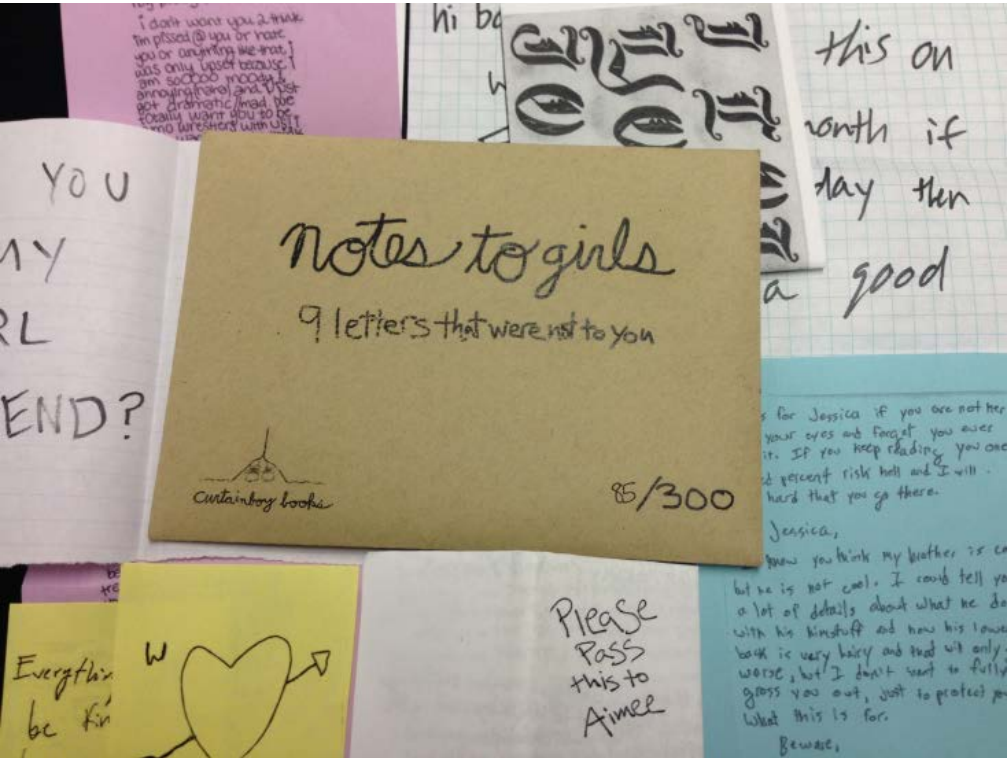 i don't want you 2 think
i'm pissed @ you or hate
you or anything like that, i
was only upset because i
am sooooo moody &
annoying/haha/ and i just
got dramatic/mad. we
totally want you to be
wrestlers with us!
hi
this on
month if
day then
a good
YOU
MY
RL
END?
notes to girls
9 letters that were not to you
curtainboy books
85/300
s for Jessica if you are not her
your eyes and forget you ever
it. If you keep reading you one
percent risk hell and I will
hard that you go there.
Jessica,
know you think my brother is co
but he is not cool. I could tell yo
a lot of details about what he do
with his and how his lower
back is very hairy and that will only
worse, but I don't want to fully
gross you out, just to protect yo
What this is for.
Beware,
Everythin
be kin
W
Please
Pass
this to
Aimee